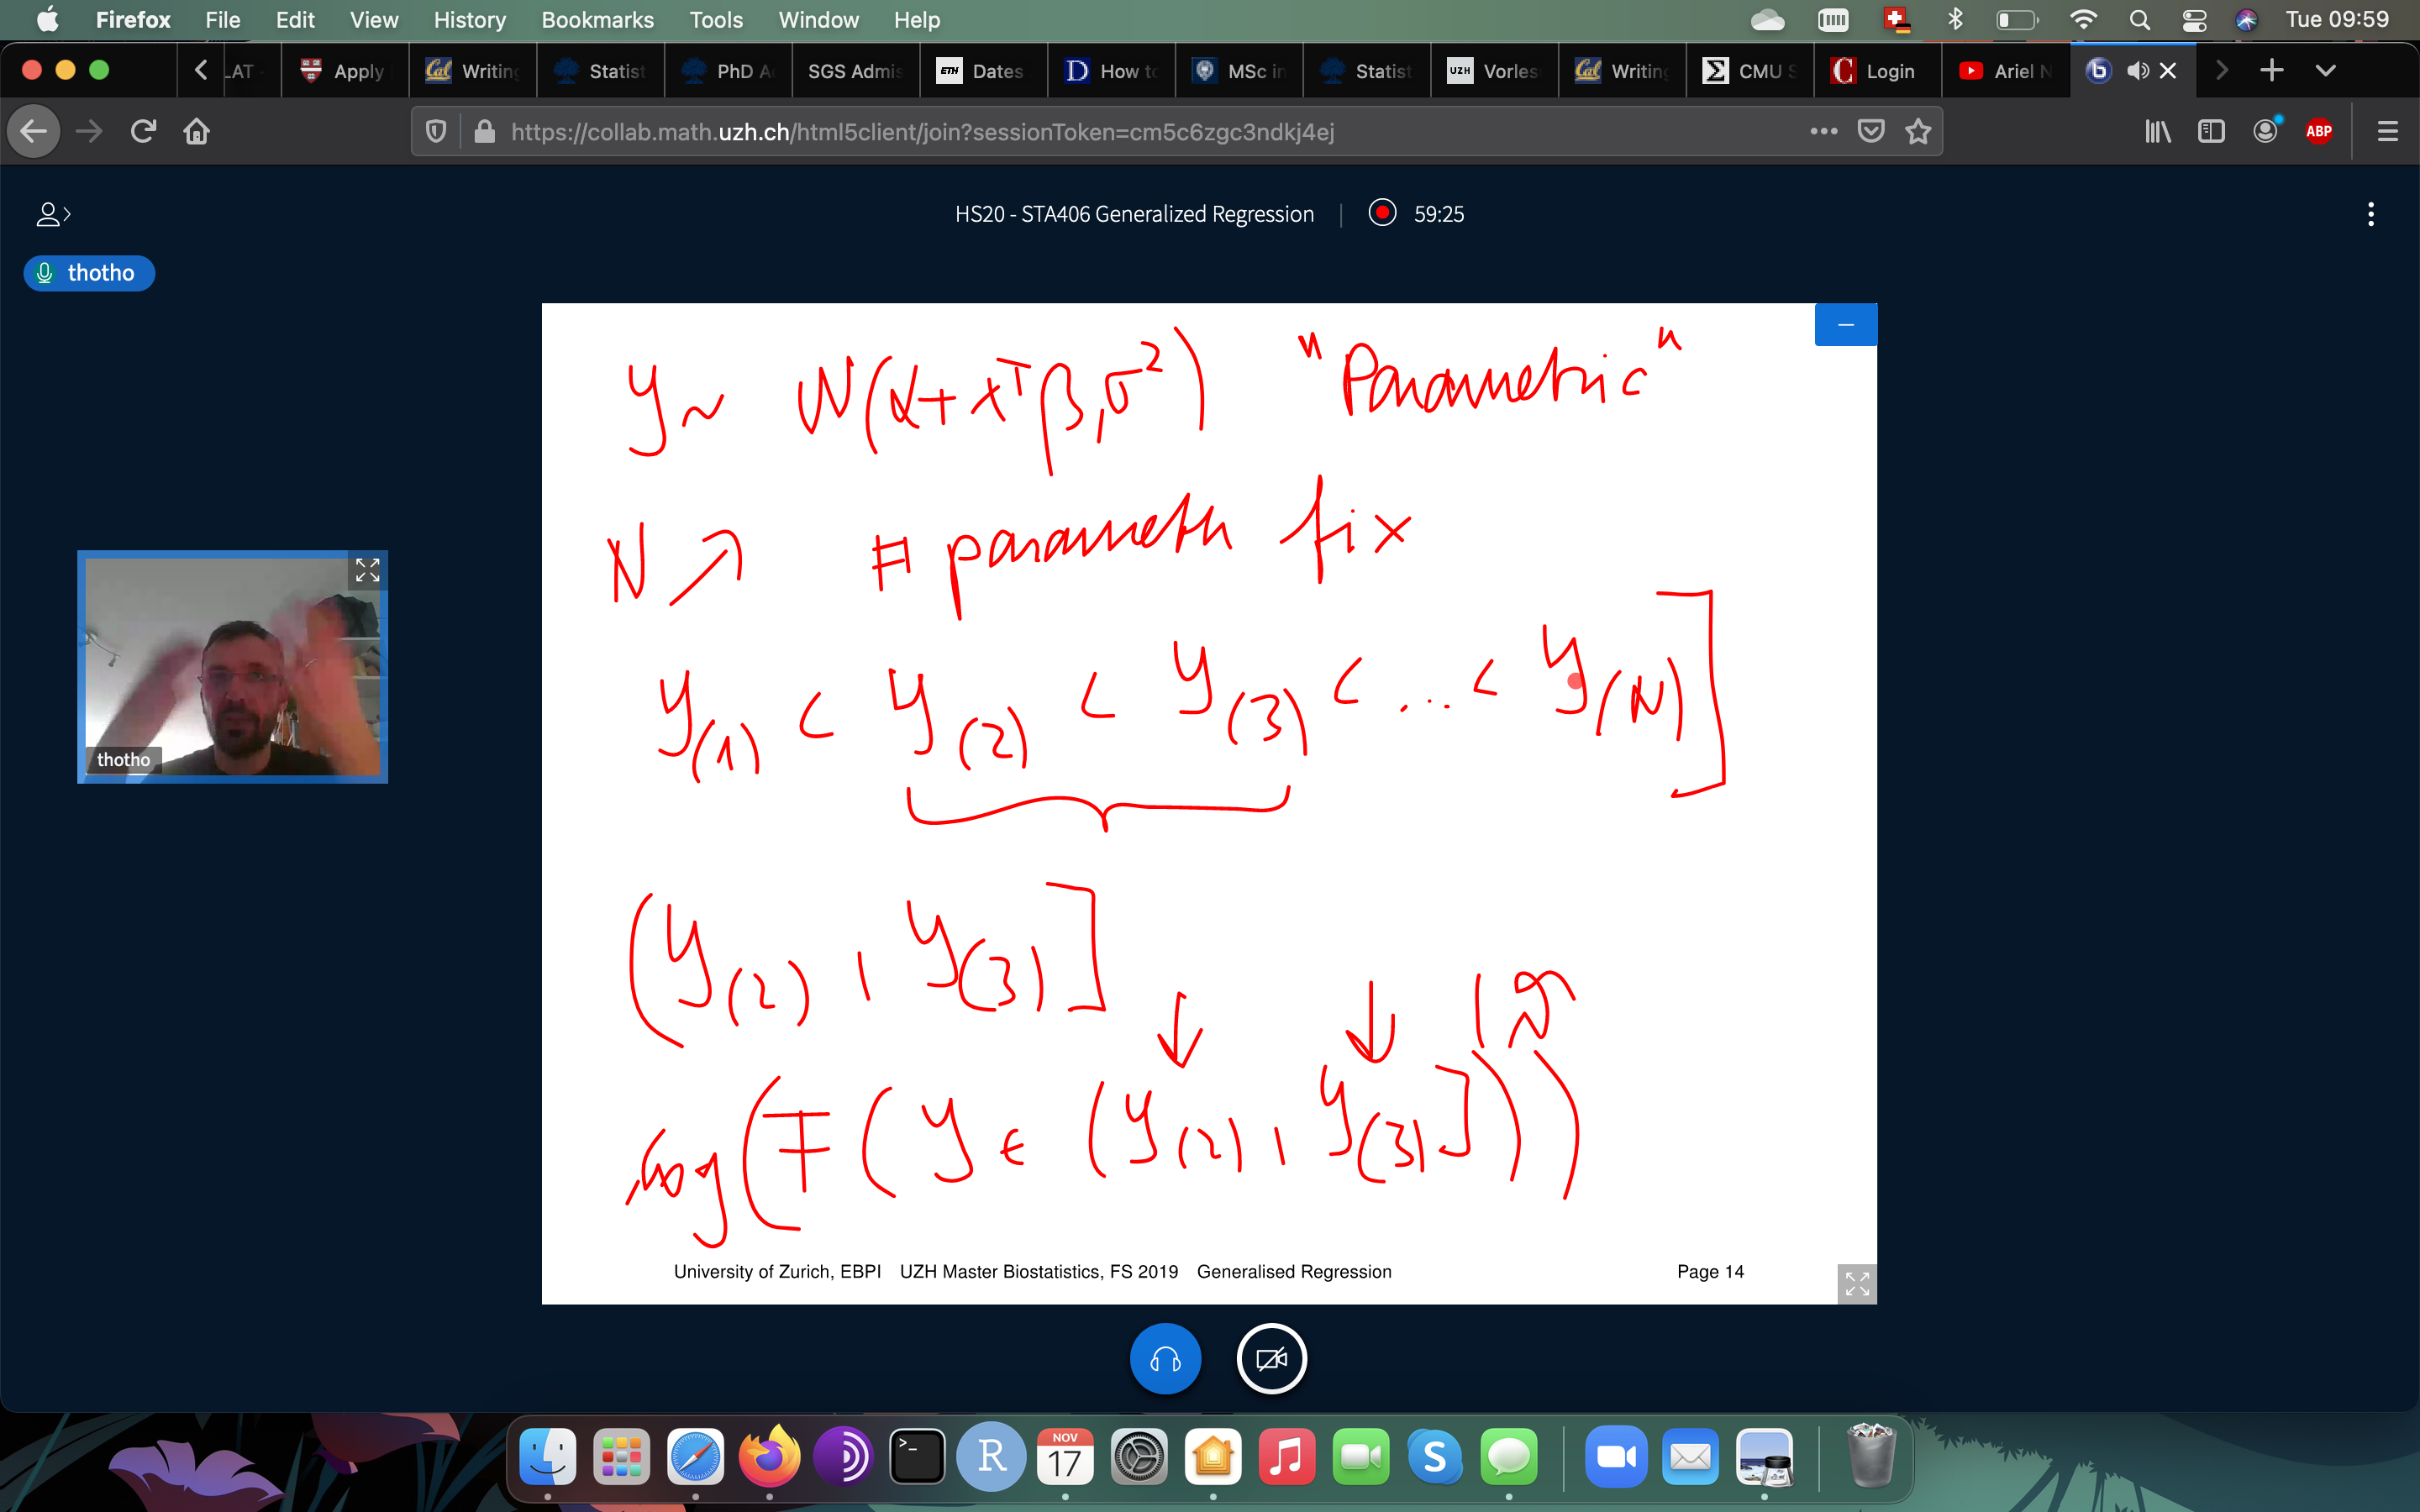 Firefox File Edit View History Bookmarks Tools Window Help Tue 09:59
LAT Apply Cal Writing Statist PhD A SGS Admis ETH Dates D How to MSc in Statist UZH Vorles Cal Writing Σ CMU S C Login Ariel N
https://collab.math.uzh.ch/html5client/join?sessionToken=cm5c6zgc3ndkj4ej ABP
HS20 - STA406 Generalized Regression | 59:25
thotho
y ~ N(α + x^T β, σ²) "Parametric"
N ↗ # parameter fix
y(1) < y(2) < y(3) < ... < y(N) ]
thotho
(y(2), y(3)]
↓ ↓
log(F(y ∈ (y(2), y(3)]))
University of Zurich, EBPI UZH Master Biostatistics, FS 2019 Generalised Regression Page 14
>_ R NOV 17 S